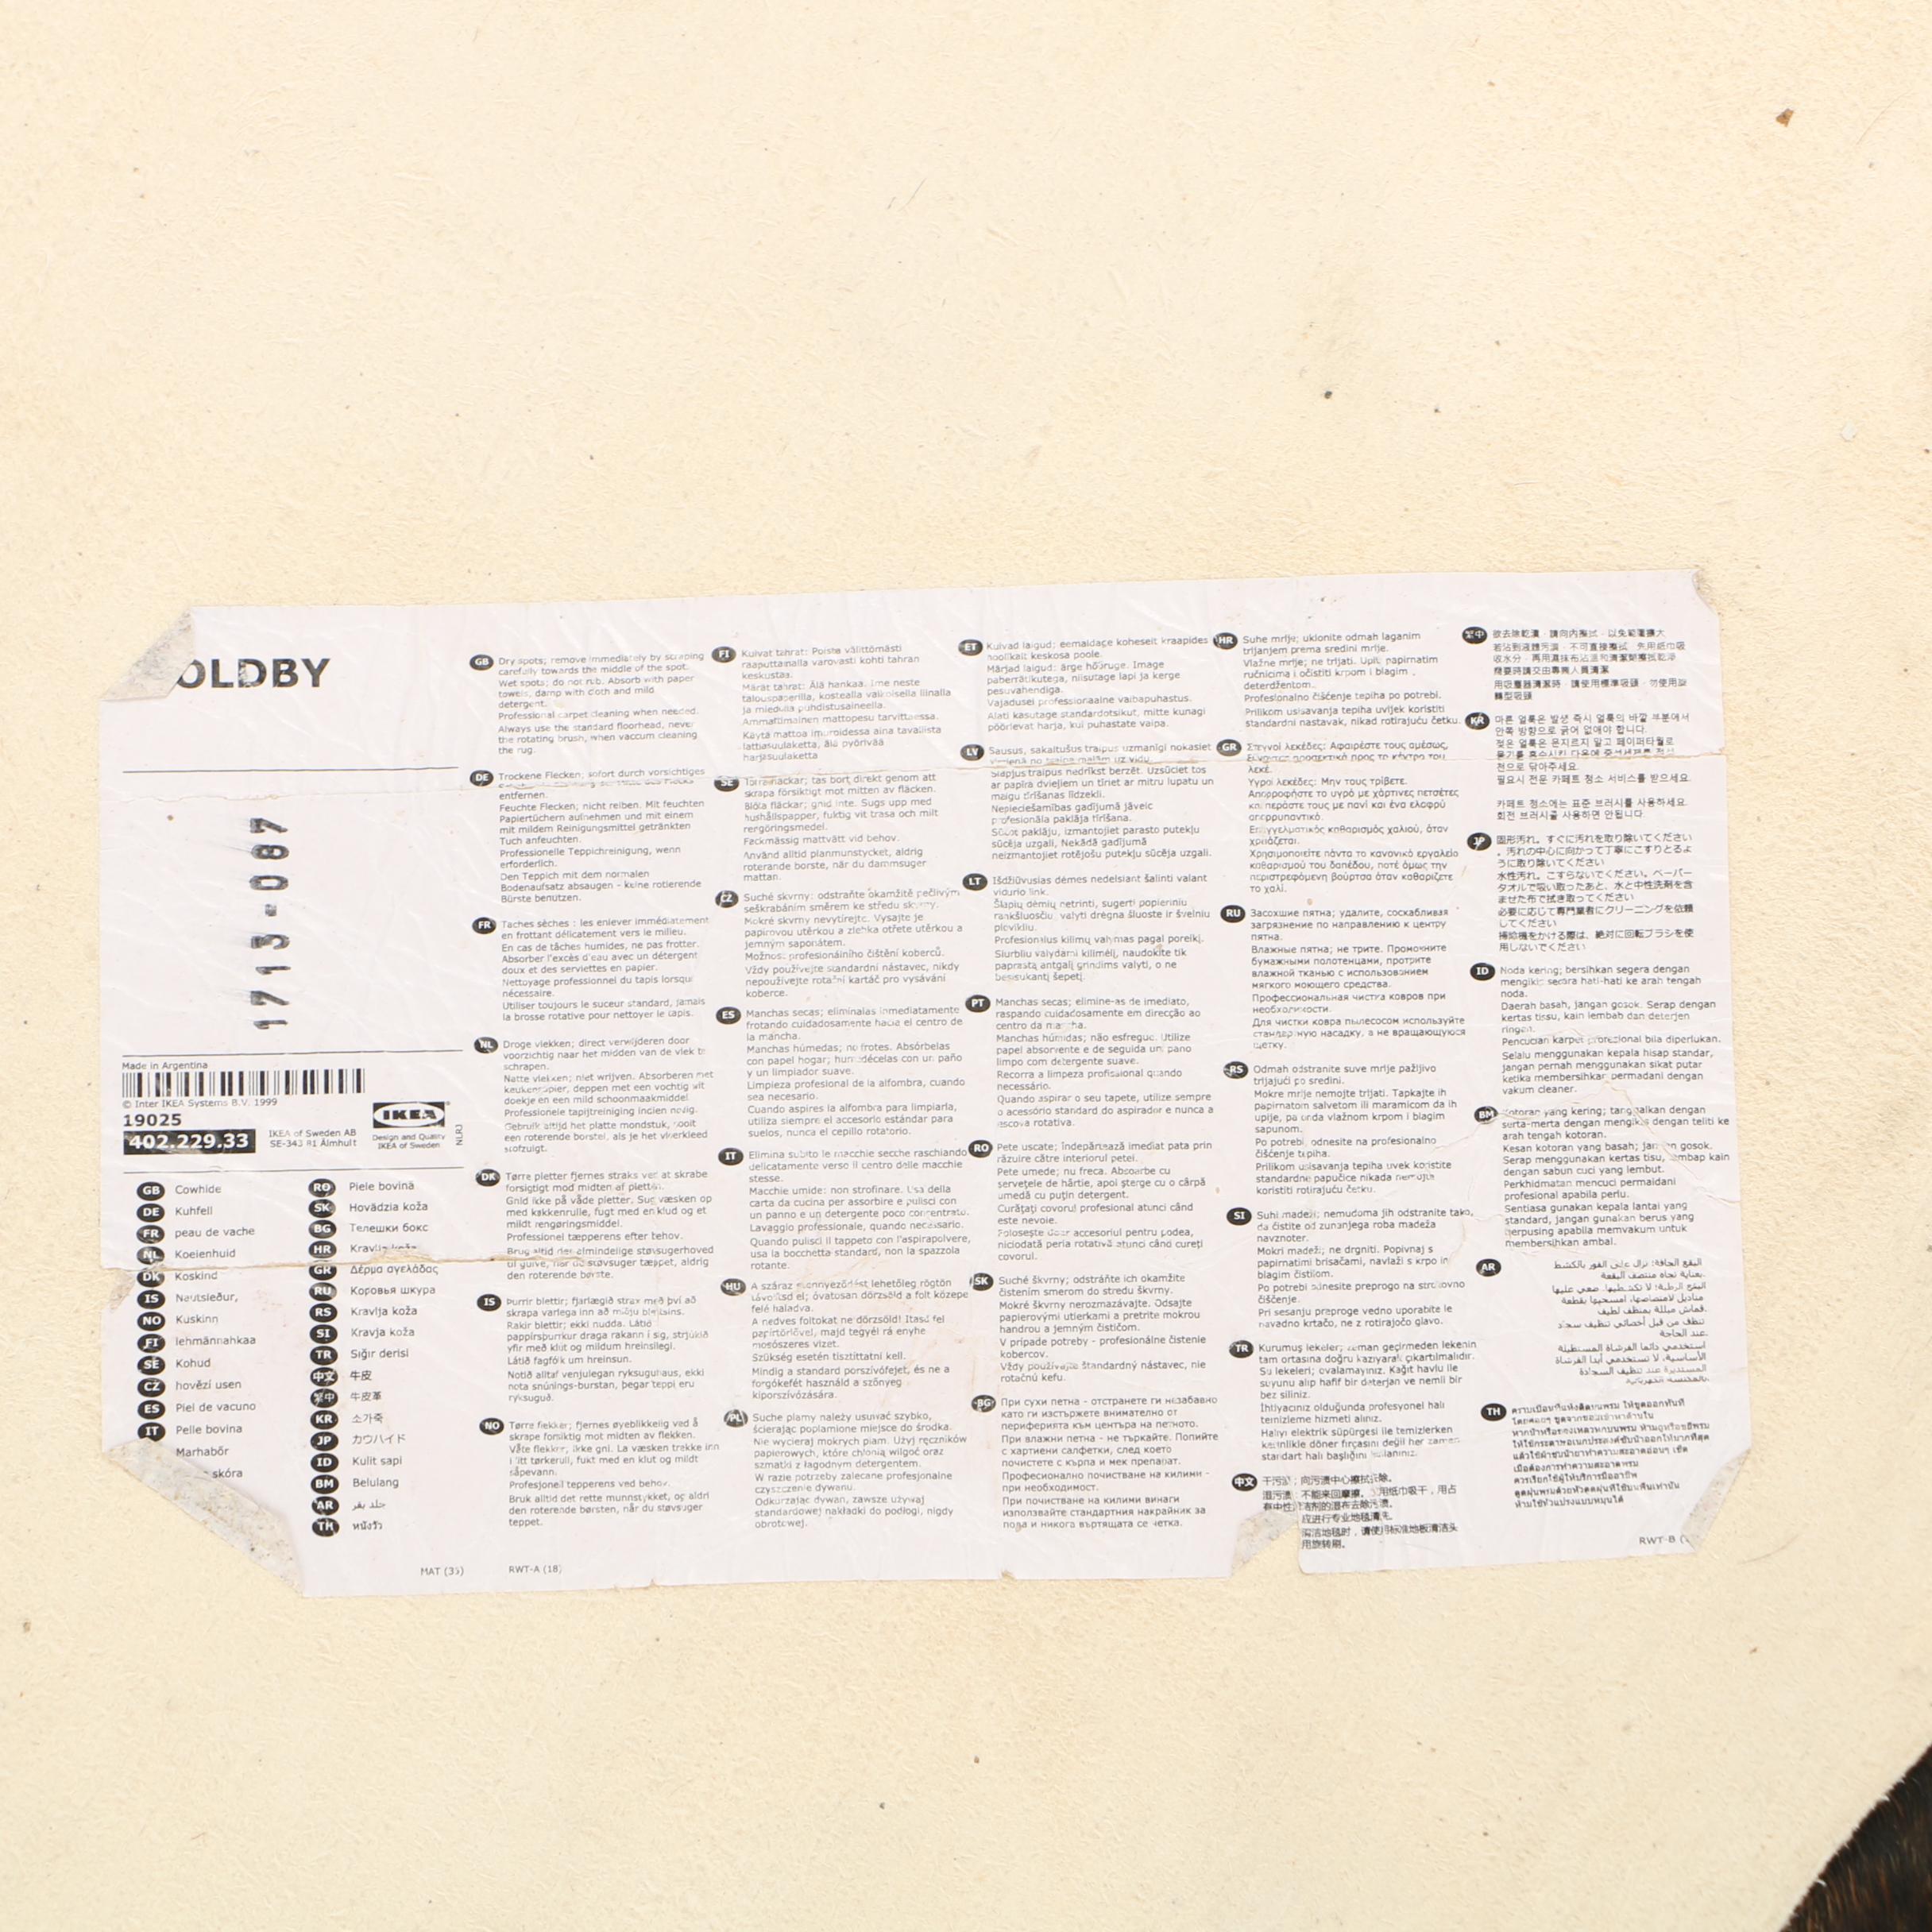 OLDBY
1713-087
Made in Argentina
© Inter IKEA Systems B.V. 1999
19025
402.229.33
IKEA of Sweden AB
SE-343 81 Älmhult
IKEA
Design and Quality
IKEA of Sweden
NLRJ
GB Cowhide
DE Kuhfell
FR peau de vache
NL Koeienhuid
DK Koskind
IS Nautsleður,
NO Kuskinn
FI lehmännahkaa
SE Kohud
CZ hovězí usen
ES Piel de vacuno
IT Pelle bovina
Marhabőr
skóra
RO Piele bovină
SK Hovädzia koža
BG Телешки бокс
HR Kravlja koža
GR Δέρμα αγελάδας
RU Коровья шкура
RS Kravlja koža
SI Kravja koža
TR Sığır derisi
中文 牛皮
繁中 牛皮革
KR 소가죽
JP カウハイド
ID Kulit sapi
BM Belulang
AR جلد بقر
TH หนังวัว
MAT (35)
GB Dry spots; remove immediately by scraping
carefully towards the middle of the spot.
Wet spots; do not rub. Absorb with paper
towels, damp with cloth and mild
detergent.
Professional carpet cleaning when needed.
Always use the standard floorhead, never
the rotating brush, when vaccum cleaning
the rug.
DE Trockene Flecken; sofort durch vorsichtiges
entfernen.
Feuchte Flecken; nicht reiben. Mit feuchten
Papiertüchern aufnehmen und mit einem
mit mildem Reinigungsmittel getränkten
Tuch anfeuchten.
Professionelle Teppichreinigung, wenn
erforderlich.
Den Teppich mit dem normalen
Bodenaufsatz absaugen - keine rotierende
Bürste benutzen.
FR Taches sèches : les enlever immédiatement
en frottant délicatement vers le milieu.
En cas de tâches humides, ne pas frotter.
Absorber l'excès d'eau avec un détergent
doux et des serviettes en papier.
Nettoyage professionnel du tapis lorsque
nécessaire.
Utiliser toujours le suceur standard, jamais
la brosse rotative pour nettoyer le tapis.
NL Droge vlekken; direct verwijderen door
voorzichtig naar het midden van de vlek te
schrapen.
Natte vlekken; niet wrijven. Absorberen met
keukenpapier, deppen met een vochtig wit
doekje en een mild schoonmaakmiddel.
Professionele tapijtreiniging indien nodig.
Gebruik altijd het platte mondstuk, nooit
een roterende borstel, als je het vloerkleed
stofzuigt.
DK Tørre pletter fjernes straks ved at skrabe
forsigtigt mod midten af pletten.
Gnid ikke på våde pletter. Sug væsken op
med køkkenrulle, fugt med en klud og et
mildt rengøringsmiddel.
Professionel tæpperens efter behov.
Brug altid det almindelige støvsugerhoved
til gulve, når du støvsuger tæppet, aldrig
den roterende børste.
IS Þurrir blettir; fjarlægið strax með því að
skrapa varlega inn að miðju blettsins.
Rakir blettir; ekki nudda. Látið
pappírsþurrkur draga rakann í sig, strjúkið
yfir með klút og mildum hreinsilegi.
Látið fagfólk um hreinsun.
Notið alltaf venjulegan ryksuguhaus, ekki
nota snúnings-burstan, þegar teppi eru
ryksuguð.
NO Tørre flekker; fjernes øyeblikkelig ved å
skrape forsiktig mot midten av flekken.
Våte flekker; ikke gni. La væsken trekke inn
i litt tørkerull, fukt med en klut og mildt
såpevann.
Profesjonell tepperens ved behov.
Bruk alltid det rette munnstykket, og aldri
den roterende børsten, når du støvsuger
teppet.
RWT-A (18)
FI Kuivat tahrat: Poista välittömästi
raaputtamalla varovasti kohti tahran
keskustaa.
Märät tahrat: Älä hankaa. Ime neste
talouspaperilla, kostealla valkoisella liinalla
ja miedolla puhdistusaineella.
Ammattimainen mattopesu tarvittaessa.
Käytä mattoa imuroidessa aina tavallista
lattiasuulaketta, älä pyörivää
harjasuulaketta
SE Torra fläckar; tas bort direkt genom att
skrapa försiktigt mot mitten av fläcken.
Blöta fläckar; gnid inte. Sugs upp med
hushållspapper, fuktig vit trasa och milt
rengöringsmedel.
Fackmässig mattvätt vid behov.
Använd alltid planmunstycket, aldrig
roterande borste, när du dammsuger
mattan.
CZ Suché skvrny: odstraňte okamžitě pečlivým
seškrabáním směrem ke středu skvrny.
Mokré skvrny nevytírejte. Vysajte je
papírovou utěrkou a zlehka otřete utěrkou a
jemným saponátem.
Možnost profesionálního čištění koberců.
Vždy používejte standardní nástavec, nikdy
nepoužívejte rotační kartáč pro vysávání
koberce.
ES Manchas secas; elimínalas inmediatamente
frotando cuidadosamente hacia el centro de
la mancha.
Manchas húmedas; no frotes. Absórbelas
con papel hogar; humedécelas con un paño
y un limpiador suave.
Limpieza profesional de la alfombra, cuando
sea necesario.
Cuando aspires la alfombra para limpiarla,
utiliza siempre el accesorio estándar para
suelos, nunca el cepillo rotatorio.
IT Elimina subito le macchie secche raschiando
delicatamente verso il centro delle macchie
stesse.
Macchie umide: non strofinare. Usa della
carta da cucina per assorbire e pulisci con
un panno e un detergente poco concentrato.
Lavaggio professionale, quando necessario.
Quando pulisci il tappeto con l'aspirapolvere,
usa la bocchetta standard, non la spazzola
rotante.
HU A száraz szennyeződést lehetőleg rögtön
távolítsd el; óvatosan dörzsöld a folt közepe
felé haladva.
A nedves foltokat ne dörzsöld! Itasd fel
papírtörlővel, majd tegyél rá enyhe
mosószeres vizet.
Szükség esetén tisztíttatni kell.
Mindig a standard porszívófejet, és ne a
forgókefét használd a szőnyeg
kiporszívózására.
PL Suche plamy należy usuwać szybko,
ścierając poplamione miejsce do środka.
Nie wycieraj mokrych plam. Użyj ręczników
papierowych, które chłoną wilgoć oraz
szmatki z łagodnym detergentem.
W razie potrzeby zalecane profesjonalne
czyszczenie dywanu.
Odkurzając dywan, zawsze używaj
standardowej nakładki do podłogi, nigdy
obrotowej.
ET Kuivad laigud: eemaldage koheselt kraapides
hoolikalt keskosa poole.
Märjad laigud: ärge hõõruge. Image
paberrätikutega, niisutage lapi ja kerge
pesuvahendiga.
Vajadusel professionaalne vaibapuhastus.
Alati kasutage standardotsikut, mitte kunagi
pöörlevat harja, kui puhastate vaipa.
LV Sausus, sakaltušus traipus uzmanīgi nokasiet
Slapjus traipus nedrīkst berzēt. Uzsūciet tos
ar papīra dvieļiem un tīriet ar mitru lupatu un
maigu tīrīšanas līdzekli.
Nepieciešamības gadījumā jāveic
profesionāla paklāja tīrīšana.
Sūcot paklāju, izmantojiet parasto putekļu
sūcēja uzgali, Nekādā gadījumā
neizmantojiet rotējošu putekļu sūcēja uzgali.
LT Išdžiūvusias dėmes nedelsiant šalinti valant
vidurio link.
Šlapių dėmių netrinti, sugerti popieriniu
rankšluosčiu, valyti drėgna šluoste ir švelniu
plovikliu.
Profesionalus kilimų valymas pagal poreikį.
Siurbliu valydami kilimėlį, naudokite tik
paprastą antgalį grindims valyti, o ne
besisukantį šepetį.
PT Manchas secas; elimine-as de imediato,
raspando cuidadosamente em direcção ao
centro da mancha.
Manchas húmidas; não esfregue. Utilize
papel absorvente e de seguida um pano
limpo com detergente suave.
Recorra a limpeza profissional quando
necessário.
Quando aspirar o seu tapete, utilize sempre
o acessório standard do aspirador e nunca a
escova rotativa.
RO Pete uscate; îndepărtează imediat pata prin
răzuire către interiorul petei.
Pete umede; nu freca. Absoarbe cu
servețele de hârtie, apoi șterge cu o cârpă
umedă cu puțin detergent.
Curățați covorul profesional atunci când
este nevoie.
Folosește doar accesoriul pentru podea,
niciodată peria rotativă atunci când cureți
covorul.
SK Suché škvrny; odstráňte ich okamžite
čistením smerom do stredu škvrny.
Mokré škvrny nerozmazávajte. Odsajte
papierovými utierkami a pretrite mokrou
handrou a jemným čističom.
V prípade potreby - profesionálne čistenie
kobercov.
Vždy používajte štandardný nástavec, nie
rotačnú kefu.
BG При сухи петна - отстранете ги незабавно
като ги изстържете внимателно от
периферията към центъра на петното.
При влажни петна - не търкайте. Попийте
с хартиени салфетки, след което
почистете с кърпа и мек препарат.
Професионално почистване на килими -
при необходимост.
При почистване на килими винаги
използвайте стандартния накрайник за
пода и никога въртящата се четка.
HR Suhe mrlje; uklonite odmah laganim
trljanjem prema sredini mrlje.
Vlažne mrlje; ne trljati. Upiti papirnatim
ručnicima i očistiti krpom i blagim
deterdžentom.
Profesionalno čišćenje tepiha po potrebi.
Prilikom usisavanja tepiha uvijek koristiti
standardni nastavak, nikad rotirajuću četku.
GR Στεγνοί λεκέδες: Αφαιρέστε τους αμέσως,
ξύνοντας προσεκτικά προς το κέντρο του
λεκέ.
Υγροί λεκέδες: Μην τους τρίβετε.
Απορροφήστε το υγρό με χάρτινες πετσέτες
και περάστε τους με πανί και ένα ελαφρύ
απορρυπαντικό.
Επαγγελματικός καθαρισμός χαλιού, όταν
χρειάζεται.
Χρησιμοποιείτε πάντα το κανονικό εργαλείο
καθαρισμού του δαπέδου, ποτέ όμως την
περιστρεφόμενη βούρτσα όταν καθαρίζετε
το χαλί.
RU Засохшие пятна; удалите, соскабливая
загрязнение по направлению к центру
пятна.
Влажные пятна; не трите. Промокните
бумажными полотенцами, протрите
влажной тканью с использованием
мягкого моющего средства.
Профессиональная чистка ковров при
необходимости.
Для чистки ковра пылесосом используйте
стандартную насадку, а не вращающуюся
щетку.
RS Odmah odstranite suve mrlje pažljivo
trljajući po sredini.
Mokre mrlje nemojte trljati. Tapkajte ih
papirnatom salvetom ili maramicom da ih
upije, pa onda vlažnom krpom i blagim
sapunom.
Po potrebi odnesite na profesionalno
čišćenje tepiha.
Prilikom usisavanja tepiha uvek koristite
standardne papučice nikada nemojte
koristiti rotirajuću četku.
SI Suhi madeži; nemudoma jih odstranite tako,
da čistite od zunanjega roba madeža
navznoter.
Mokri madeži; ne drgniti. Popivnaj s
papirnatimi brisačami, navlaži s krpo in
blagim čistilom.
Po potrebi odnesite preprogo na strokovno
čiščenje.
Pri sesanju preproge vedno uporabite le
navadno krtačo, ne z rotirajočo glavo.
TR Kurumuş lekeler; zaman geçirmeden lekenin
tam ortasına doğru kazıyarak çıkartılmalıdır.
Su lekeleri; ovalamayınız. Kağıt havlu ile
suyunu alıp hafif bir deterjan ve nemli bir
bez siliniz.
İhtiyacınız olduğunda profesyonel halı
temizleme hizmeti alınız.
Halıyı elektrik süpürgesi ile temizlerken
kesinlikle döner fırçasını değil her zaman
standart halı başlığını kullanınız.
中文 干污渍：向污渍中心擦拭去除。
湿污渍：不能来回摩擦。用纸巾吸干，用占
有中性清洁剂的湿布去除污渍。
应进行专业地毯清洗。
清洁地毯时，请使用标准地板清洁头
用旋转刷。
繁中 欲去除乾漬，請向內擦拭，以免範圍擴大
若沾到液體污漬，不可直接擦拭，先用紙巾吸
收水分，再用濕抹布沾溫和清潔劑擦拭乾淨
需要時請交由專業人員清潔
用吸塵器清潔時，請使用標準吸頭，勿使用旋
轉型吸頭
KR 마른 얼룩은 발생 즉시 얼룩의 바깥 부분에서
안쪽 방향으로 긁어 없애야 합니다.
젖은 얼룩은 문지르지 말고 페이퍼타월로
전으로 닦아주세요.
필요시 전문 카페트 청소 서비스를 받으세요.
카페트 청소에는 표준 브러시를 사용하세요.
회전 브러시를 사용하면 안됩니다.
JP 固形汚れ。すぐに汚れを取り除いてください
。汚れの中心に向かって丁寧にこすりとるよ
うに取り除いてください
水性汚れ。こすらないでください。ペーパー
タオルで吸い取ったあと、水と中性洗剤を含
ませた布で拭き取ってください
必要に応じて専門業者にクリーニングを依頼
してください
掃除機をかける際は、絶対に回転ブラシを使
用しないでください
ID Noda kering; bersihkan segera dengan
mengikis secara hati-hati ke arah tengah
noda.
Daerah basah, jangan gosok. Serap dengan
kertas tissu, kain lembab dan deterjen
ringan.
Pencucian karpet profesional bila diperlukan.
Selalu menggunakan kepala hisap standar,
jangan pernah menggunakan sikat putar
ketika membersihkan permadani dengan
vakum cleaner.
BM Kotoran yang kering; tanggalkan dengan
serta-merta dengan mengikis dengan teliti ke
arah tengah kotoran.
Kesan kotoran yang basah; jangan gosok.
Serap menggunakan kertas tisu, lembap kain
dengan sabun cuci yang lembut.
Perkhidmatan mencuci permaidani
profesional apabila perlu.
Sentiasa gunakan kepala lantai yang
standard, jangan gunakan berus yang
berpusing apabila memvakum untuk
membersihkan ambal.
AR البقع الجافة: تزال على الفور بالكشط
بعناية تجاه منتصف البقعة.
مناديل لامتصاصها، امسحيها بقطعة
قماش مبللة بمنظف لطيف.
تنظف من قبل أخصائي تنظيف سجاد
عند الحاجة.
استخدمي دائما الفرشاة المستطيلة
الأساسية، لا تستخدمي أبدا الفرشاة
المستديرة عند تنظيف السجادة
بالمكنسة الكهربائية.
TH คราบเปื้อนที่แห้งติดบนพรม ให้ขูดออกทันที
เมื่อต้องการทำความสะอาดพรม
ควรเรียกใช้ผู้ให้บริการมืออาชีพ
ห้ามใช้หัวแปรงแบบหมุนได้
RWT-B (